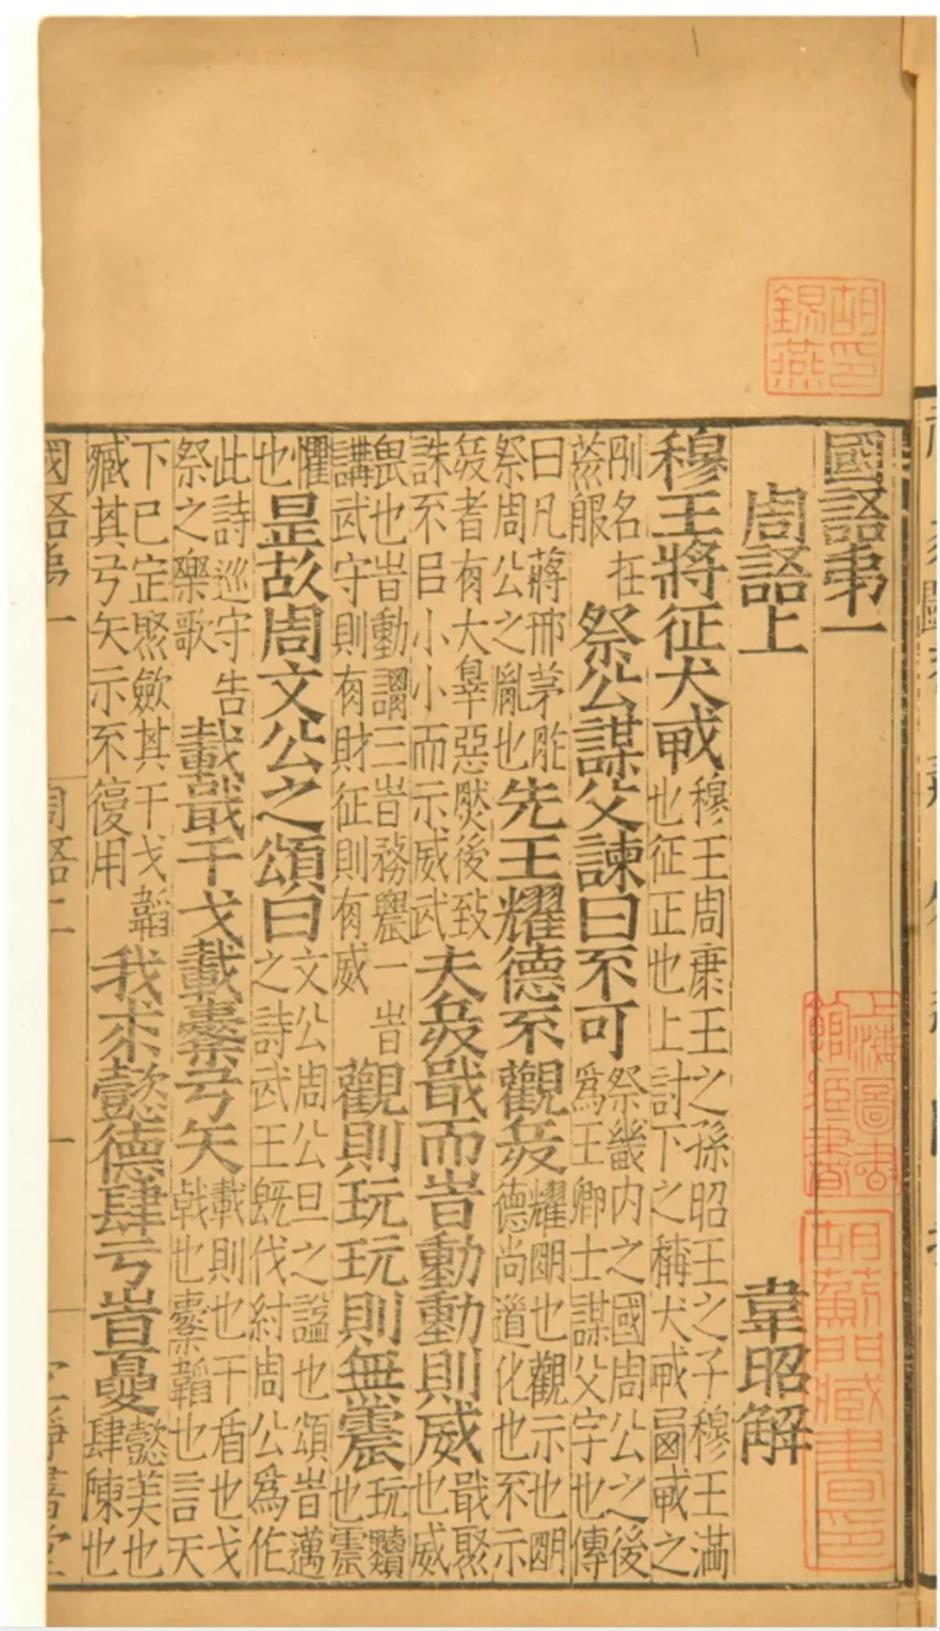 國語弟一
周語上　韋昭解
穆王將征犬戎
穆王周康王之孫昭王之子穆王滿
也征正也上討下之稱犬戎西戎之
剛名在
荒服
祭公謀父諫曰不可
祭畿内之國周公之後
爲王卿士謀父字也傳
曰凡蔣邢茅胙
祭周公之胤也
先王耀德不觀兵
耀明也觀示也明
德尚道化也不示
兵者有大辠惡然後致
誅不㠯小小而示威武
夫兵戢而旹動動則威
戢聚
也威
畏也旹動謂三旹務農一旹
講武守則有財征則有威
觀則玩玩則無震
玩黷
也震
懼
也
是故周文公之頌曰
文公周公旦之謚也頌旹邁
之詩武王既伐紂周公爲作
此詩巡守告
祭之樂歌
載戢干戈載櫜弓矢
載則也干盾也戈
戟也櫜韜也言天
下已定聚斂其干戈韜
臧其弓矢示不復用
我求懿德肆亏旹夏
懿美也
肆陳也
國語弟一
周語二
一
胡印錫燕
上海圖書館所藏書